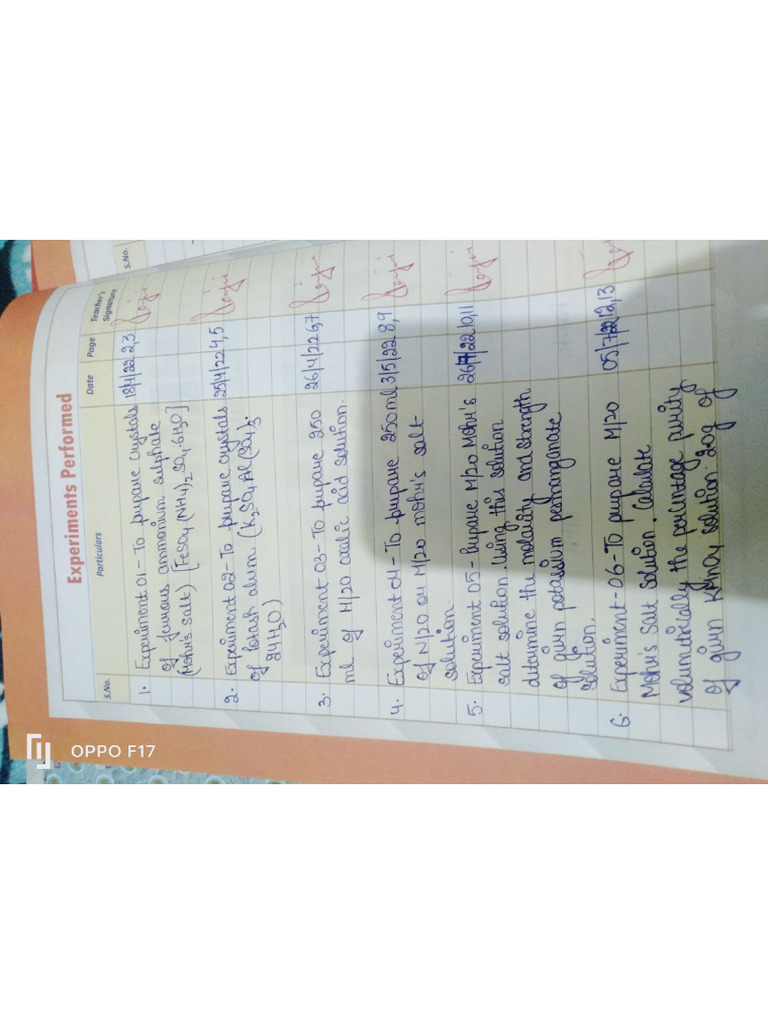 Experiments Performed
S.No. Particulars Date Page Teacher's Signature
1. Experiment 01 - To prepare crystals 18/4/22 2,3
of ferrous ammonium sulphate
(Mohr's salt) [FeSO4(NH4)2SO4.6H2O]
2. Experiment 02 - To prepare crystals 25/4/22 4,5
of Potash alum (K2SO4Al(SO4)3.
24H2O)
3. Experiment 03 - To prepare 250 26/4/22 6,7
ml of M/20 oxalic acid solution.
4. Experiment 04 - To prepare 250ml 3/5/22 8,9
of N/20 or M/20 mohr's salt
solution.
5. Experiment 05 - Prepare M/20 Mohr's 26/7/22 10,11
salt solution. Using this solution
determine the molarity and strength
of given potassium permanganate
solution.
6. Experiment - 06 - To prepare M/20 05/7/22 12,13
Mohr's salt solution. Calculate
volumetrically the percentage purity
of given KMnO4 solution 20g of
S.No.
OPPO F17